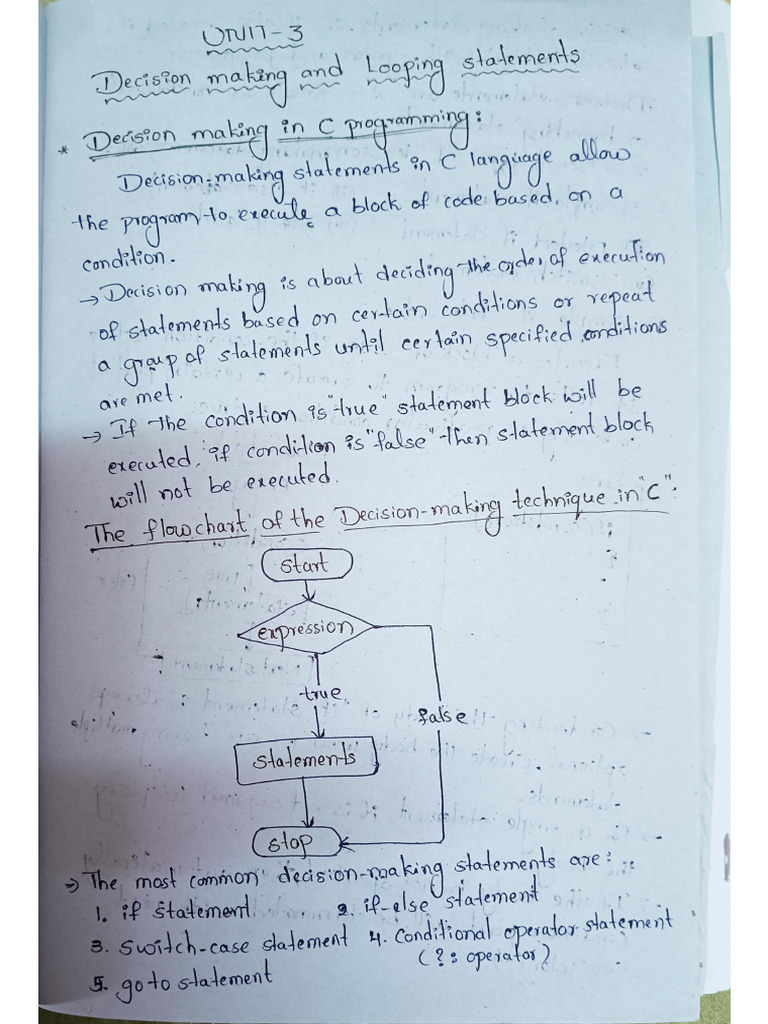 UNIT-3
Decision making and Looping statements
* Decision making in C programming:
Decision-making statements in C language allow
the program to execute a block of code based on a
condition.
→ Decision making is about deciding the order of execution
of statements based on certain conditions or repeat
a group of statements until certain specified conditions
are met.
→ If the condition is "true" statement block will be
executed, if condition is "false" then statement block
will not be executed.
The flowchart of the Decision-making technique in "C":
start
expression
true
false
statements
stop
→ The most common decision-making statements are:
1. if statement 2. if-else statement
3. switch-case statement 4. Conditional operator statement
(?: operator)
5. goto statement